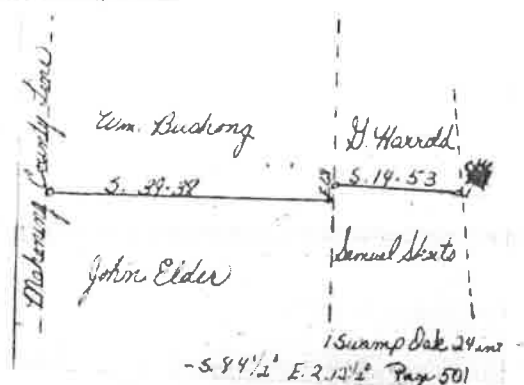 Mahoning County Line
Wm. Bushong
G. Harrold
S. 39-38
S. 19-53
John Elder
Samuel
1 Swamp Oak 24 ins
- S. 84 1/2° E. 2.12 1/2 Page 501